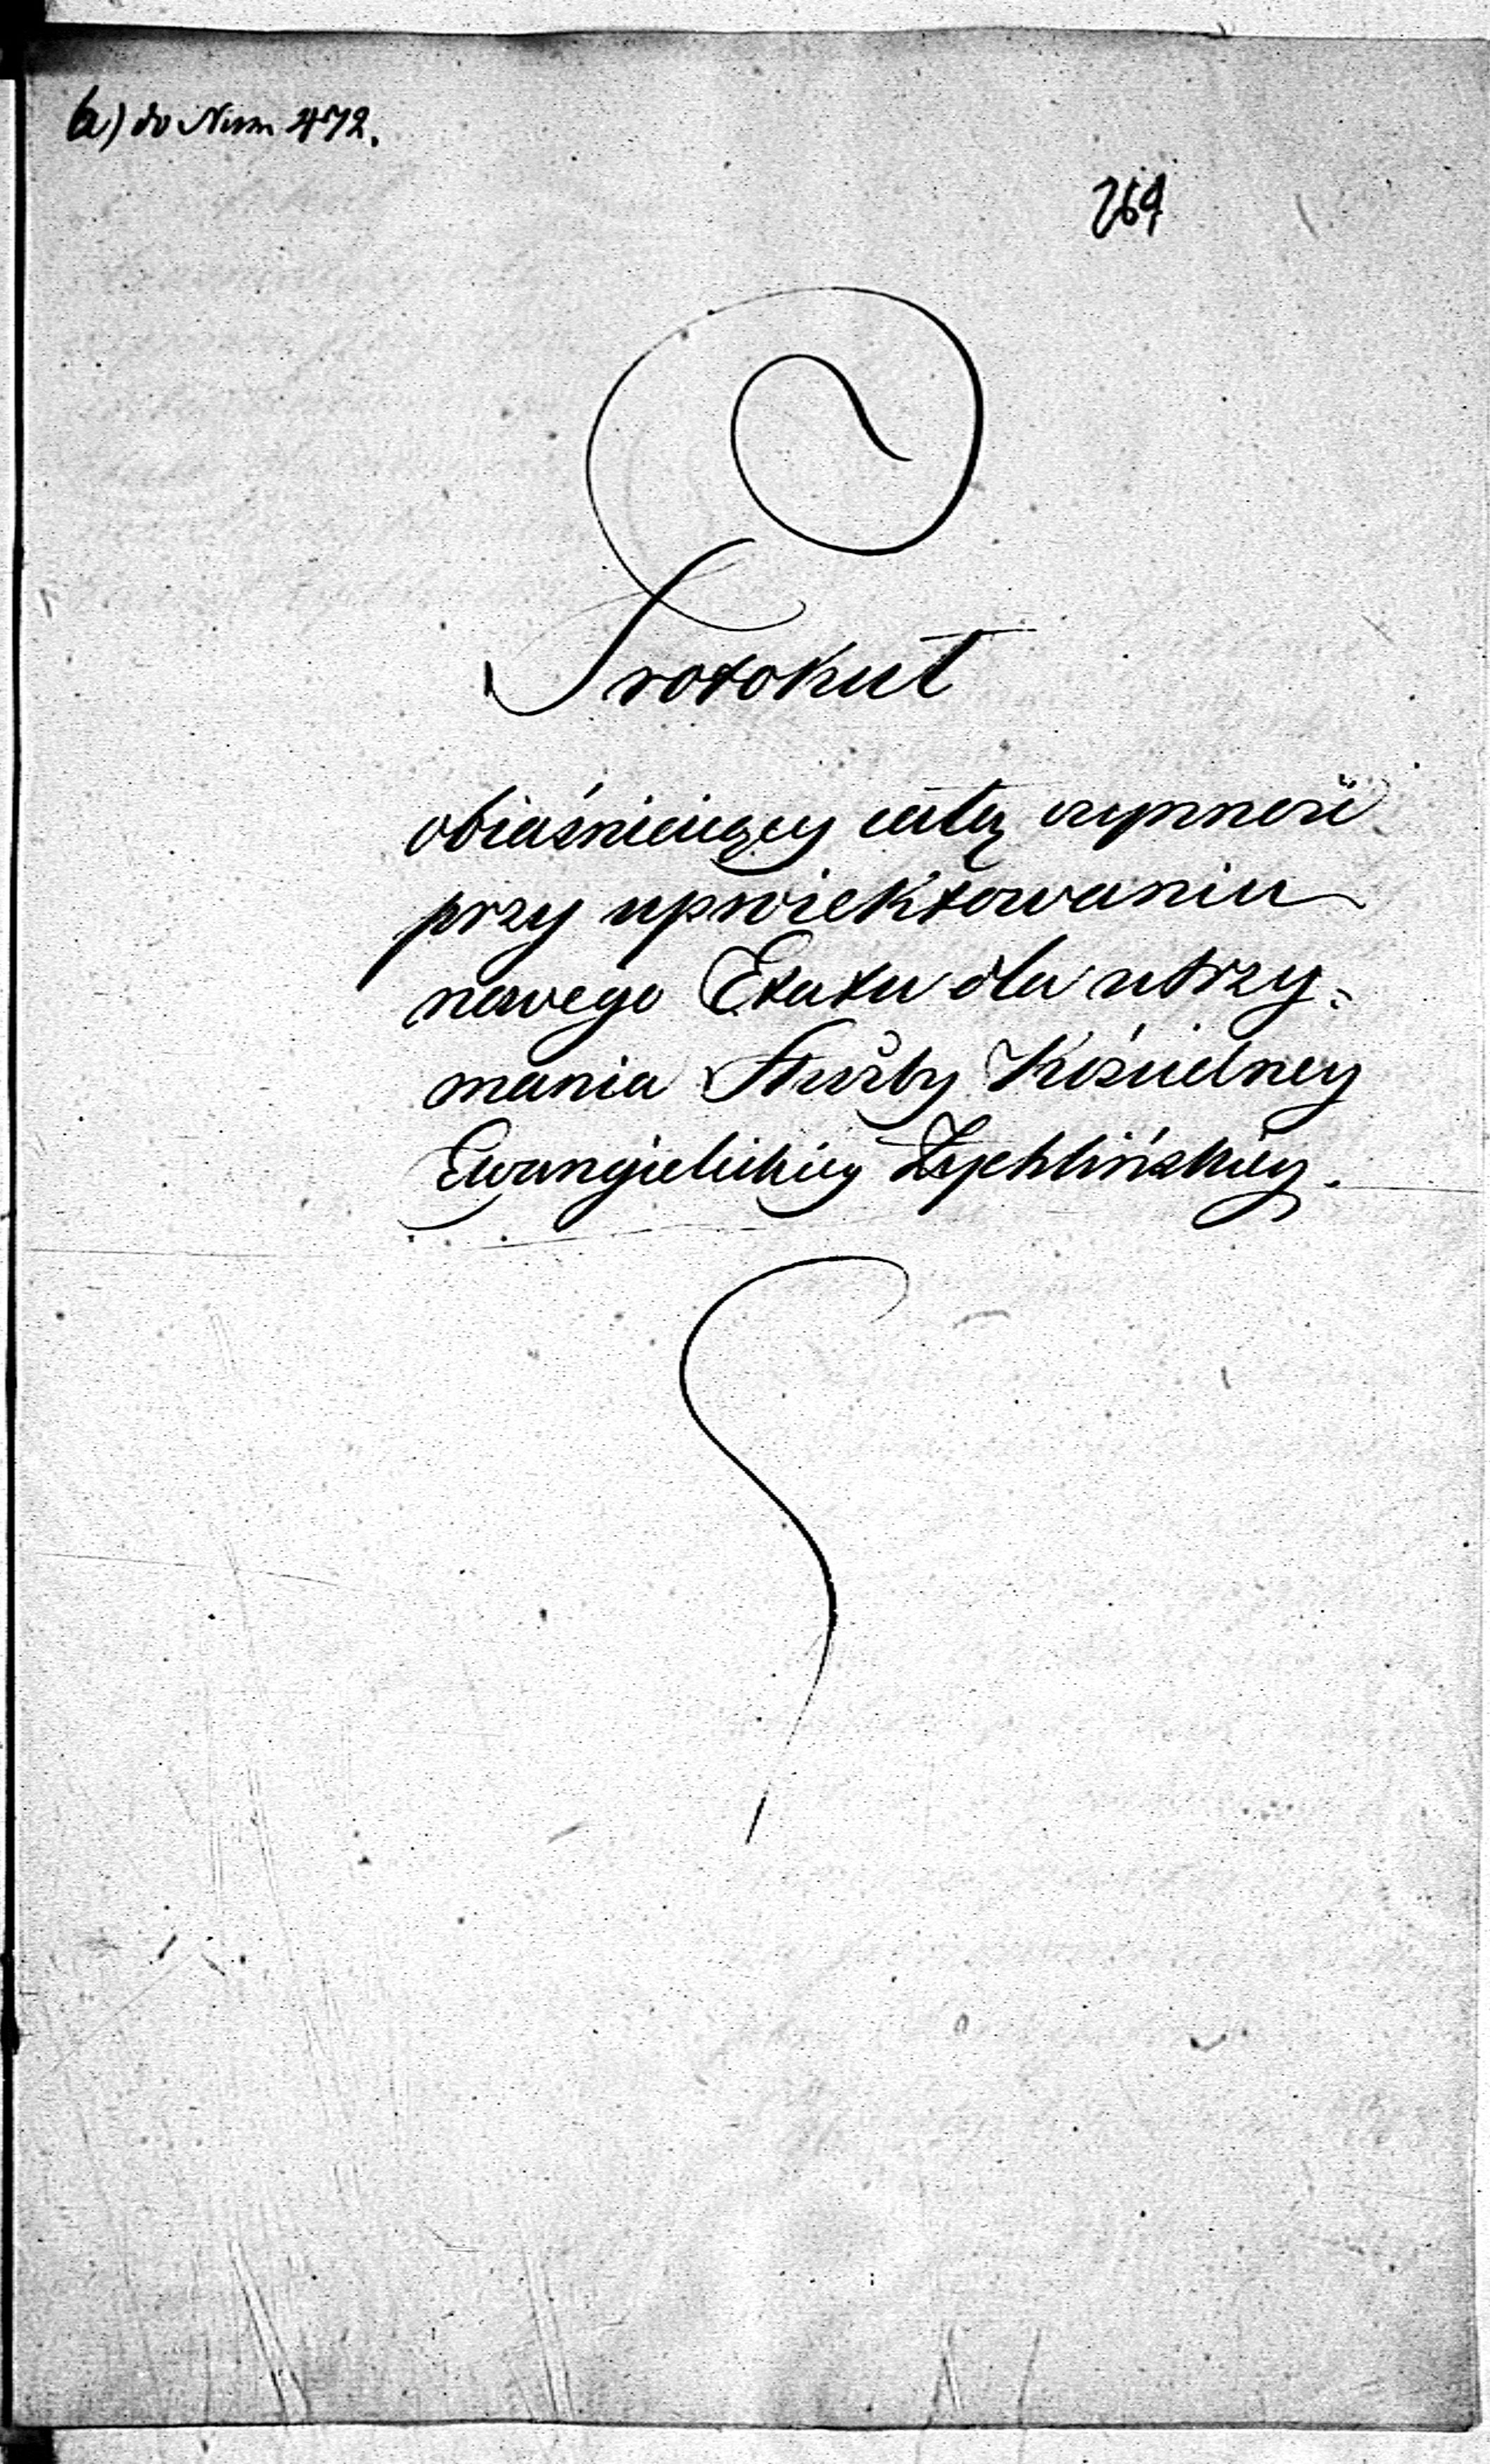 a) do Num 472.
264
Protokuł
obiaśniaiący całą czynność
przy uproiektowaniu
nowego Etatu dla utrzy=
mania Służby Kościelney
Ewangielickiey Żychlińskiey.